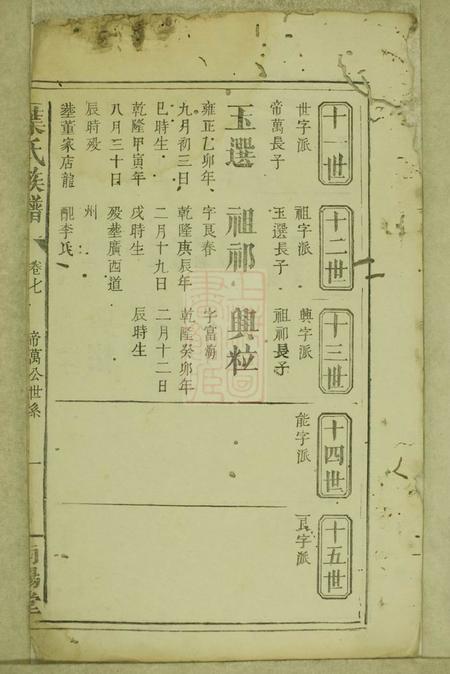 十一世
世字派
帝萬長子
玉選
雍正乙卯年
九月初三日
巳時生
乾隆甲寅年
八月三十日
辰時歿
塟董家店龍
十二世
祖字派
玉選長子
祖祁
字良春
乾隆庚辰年
二月十九日
戌時生
歿塟廣西道
州
配李氏
十三世
興字派
祖祁長子
興粒
字富海
乾隆癸卯年
二月十二日
辰時生
十四世
能字派
十五世
良字派
葉氏族譜
卷七
帝萬公世系
一
南陽堂